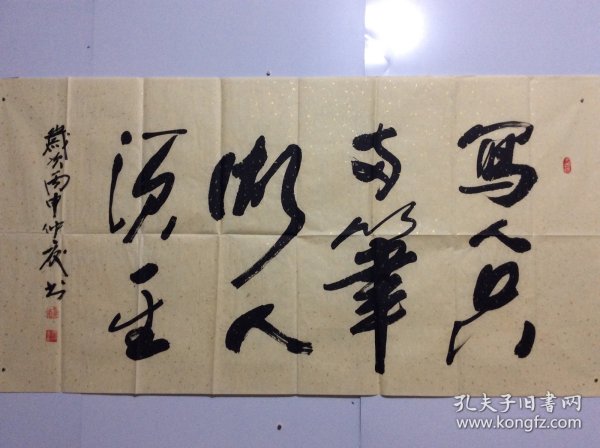 寫人只
两筆
做人
須一生
歲次丙申仲夏书
孔夫子旧书网
www.kongfz.com